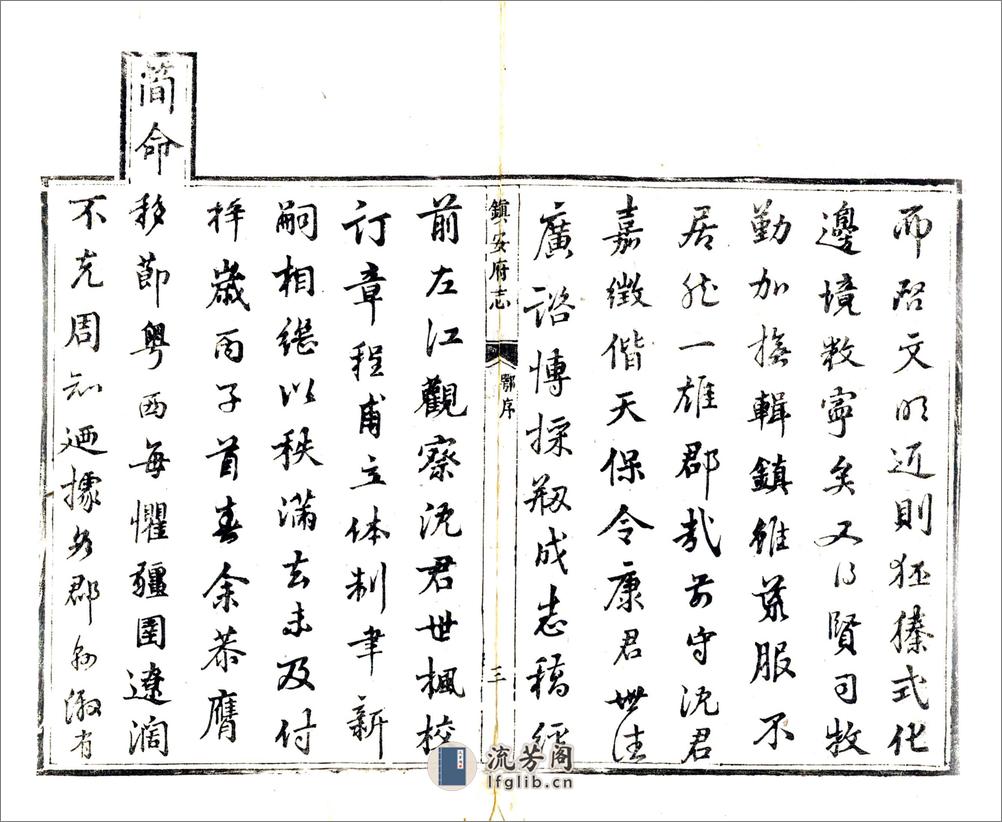 而啓文明近則狉獉式化
邊境敉寧矣又得賢司牧
勤加撫輯鎮雖荒服不
居然一雄郡哉前守沈君
嘉徵偕天保令康君世德
廣諮博採刱成志稿經
鎮安府志
鄂序
三
前左江觀察沈君世楓校
訂章程甫立体制聿新
嗣相繼以秩滿去未及付
梓歲丙子首春余恭膺
簡命
移節粵西每懼疆圉遼濶
不克周知廼據各郡縣澈有
流芳阁
lfglib.cn